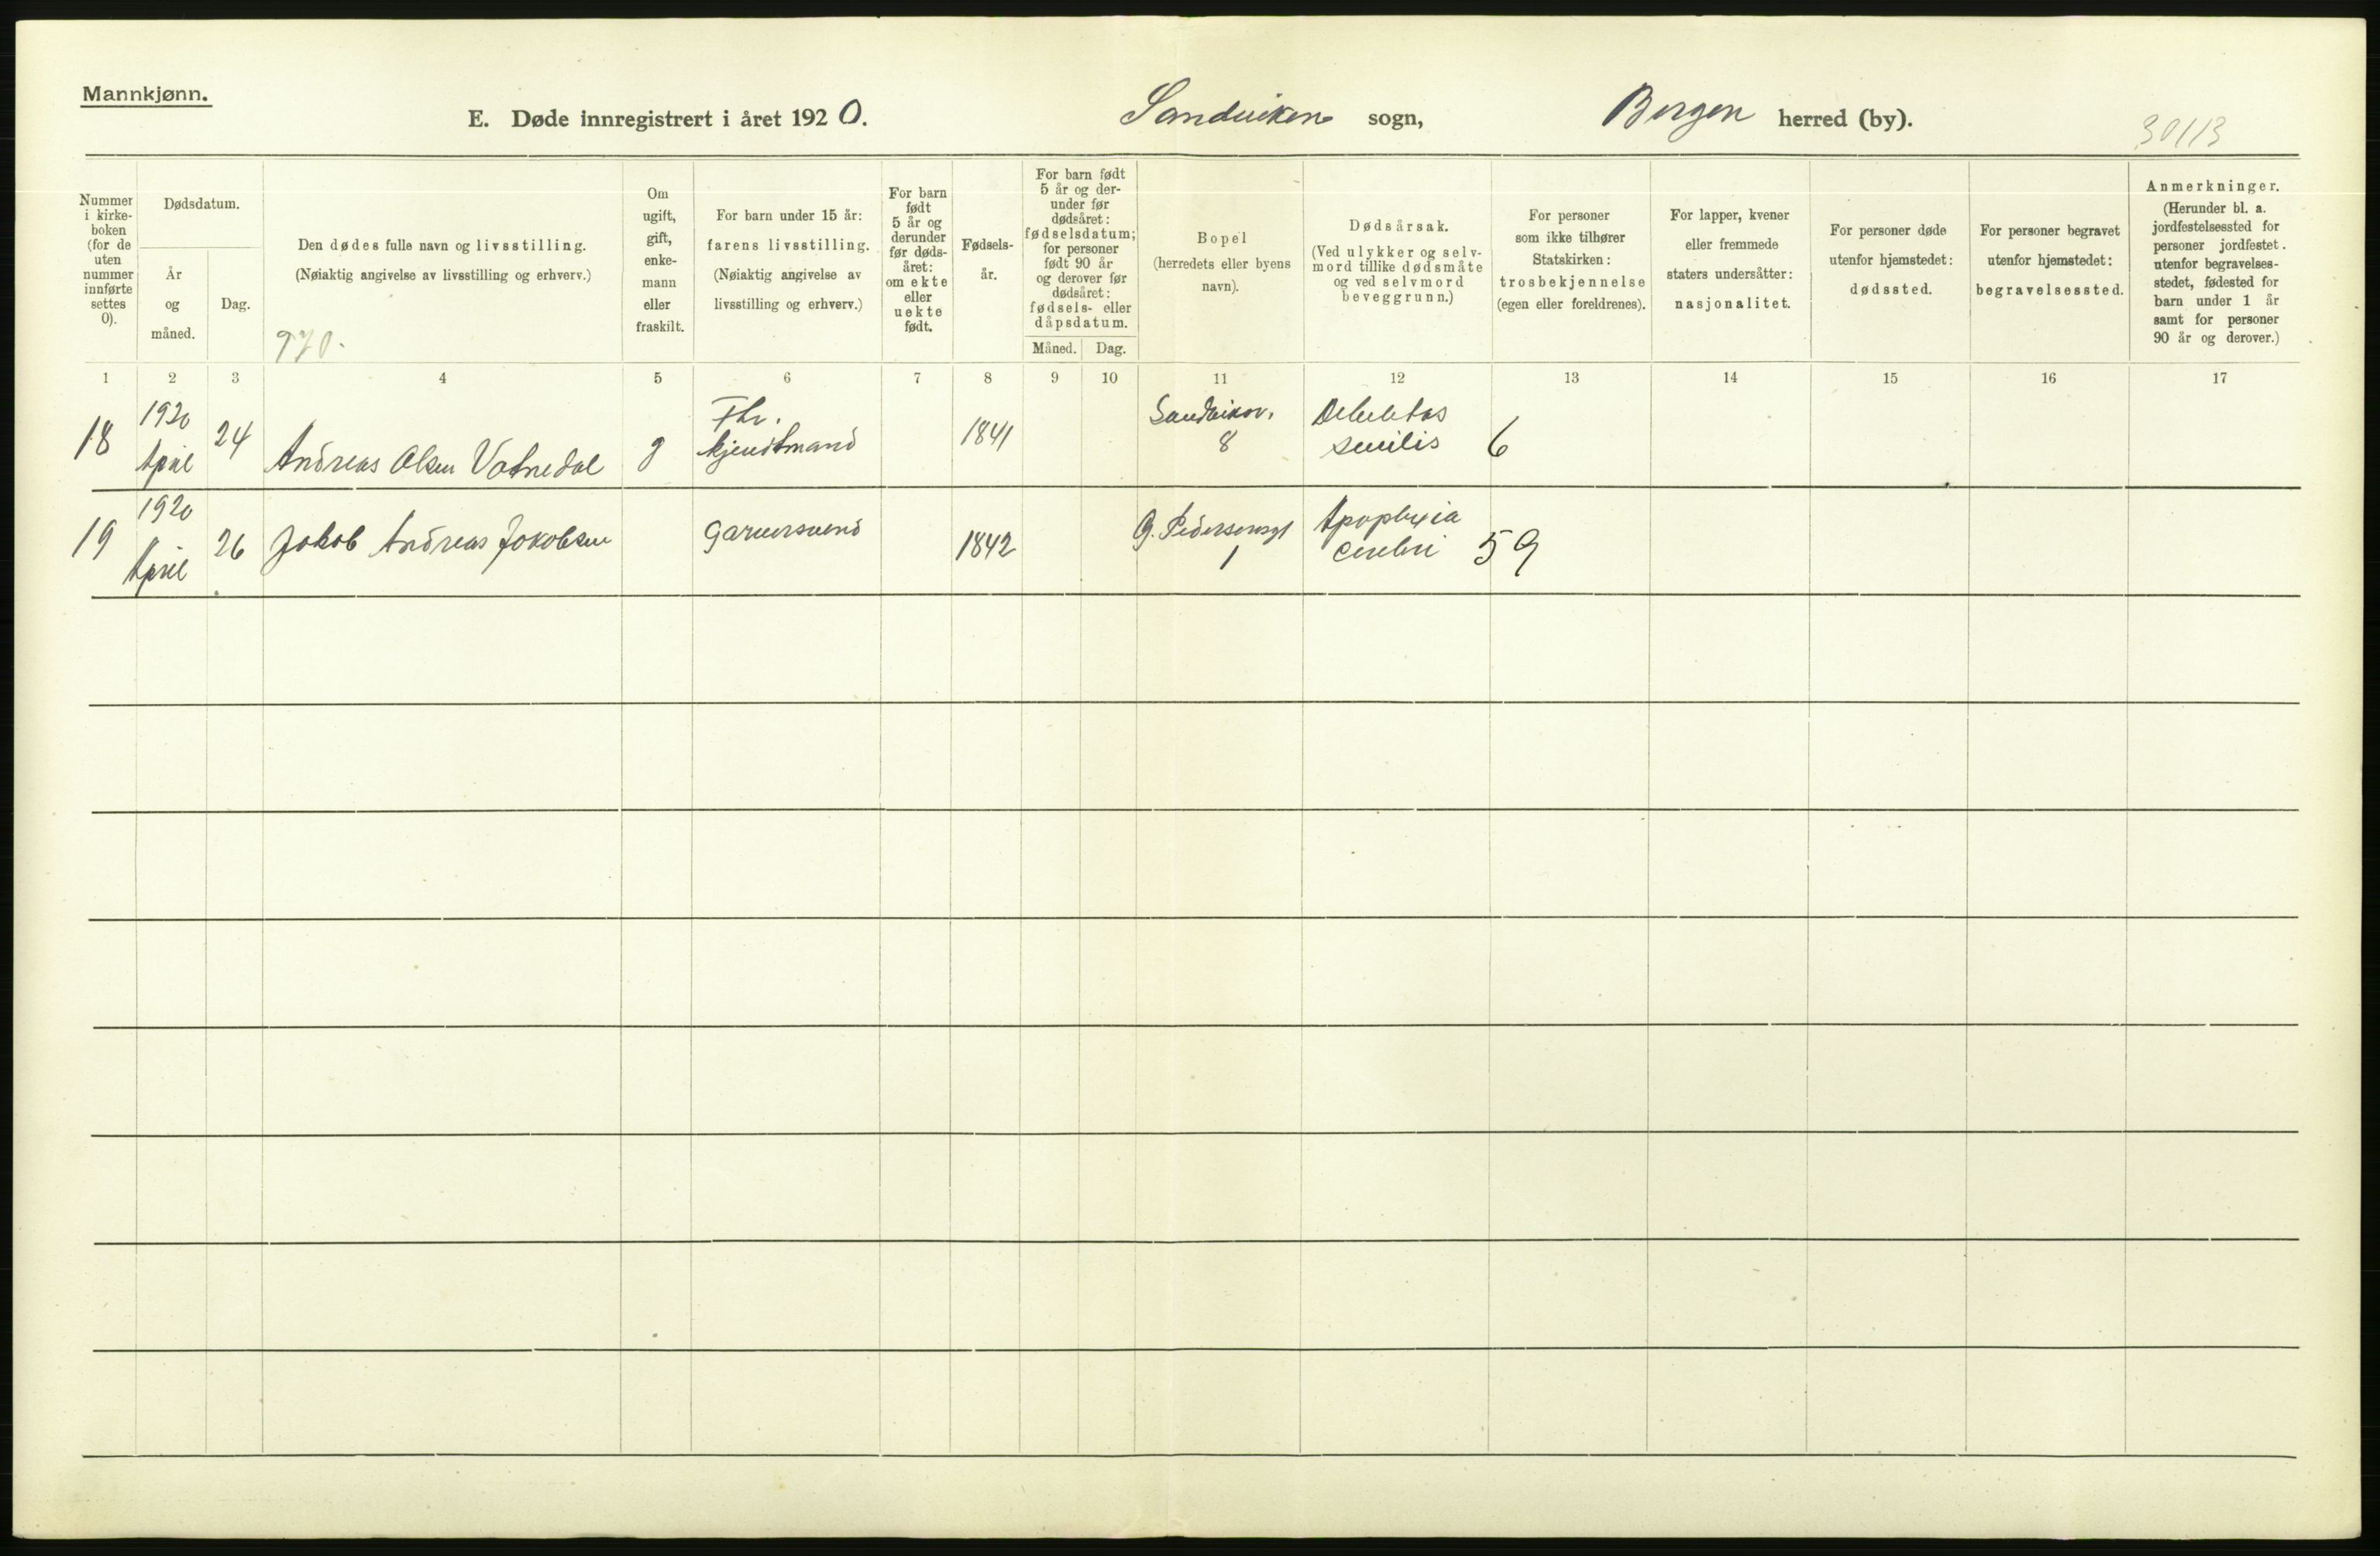 Mannkjønn.
E. Døde innregistrert i året 1920. Sandviken sogn, Bergen herred (by).
30113
Nummer
i kirke-
boken
(for de
uten
nummer
innførte
settes
0).
Dødsdatum.
År
og
måned.
Dag.
Den dødes fulle navn og livsstilling.
(Nøiaktig angivelse av livsstilling og erhverv.)
970.
Om
ugift,
gift,
enke-
mann
eller
fraskilt.
For barn under 15 år:
farens livsstilling.
(Nøiaktig angivelse av
livsstilling og erhverv.)
For barn
født
5 år og
derunder
før døds-
året:
om ekte
eller
uekte
født.
Fødsels-
år.
For barn født
5 år og der-
under før
dødsåret:
fødselsdatum;
for personer
født 90 år
og derover før
dødsåret:
fødsels- eller
dåpsdatum.
Måned.
Dag.
Bopel
(herredets eller byens
navn).
Dødsårsak.
(Ved ulykker og selv-
mord tillike dødsmåte
og ved selvmord
beveggrunn.)
For personer
som ikke tilhører
Statskirken:
trosbekjennelse
(egen eller foreldrenes).
For lapper, kvener
eller fremmede
staters undersåtter:
nasjonalitet.
For personer døde
utenfor hjemstedet:
dødssted.
For personer begravet
utenfor hjemstedet:
begravelsessted.
Anmerkninger.
(Herunder bl. a.
jordfestelsessted for
personer jordfestet
utenfor begravelses-
stedet, fødested for
barn under 1 år
samt for personer
90 år og derover.)
1 2 3 4 5 6 7 8 9 10 11 12 13 14 15 16 17
18
1920
April
24
Andreas Olsen Vatnedal
g
Fhv.
kjendtmand
1841
Sandvikov.
8
Debilitas
senilis
6
19
1920
April
26
Jakob Andreas Jakobsen
Garversvend
1842
G. Pedersensgt
1
Apoplexia
cerebri
59